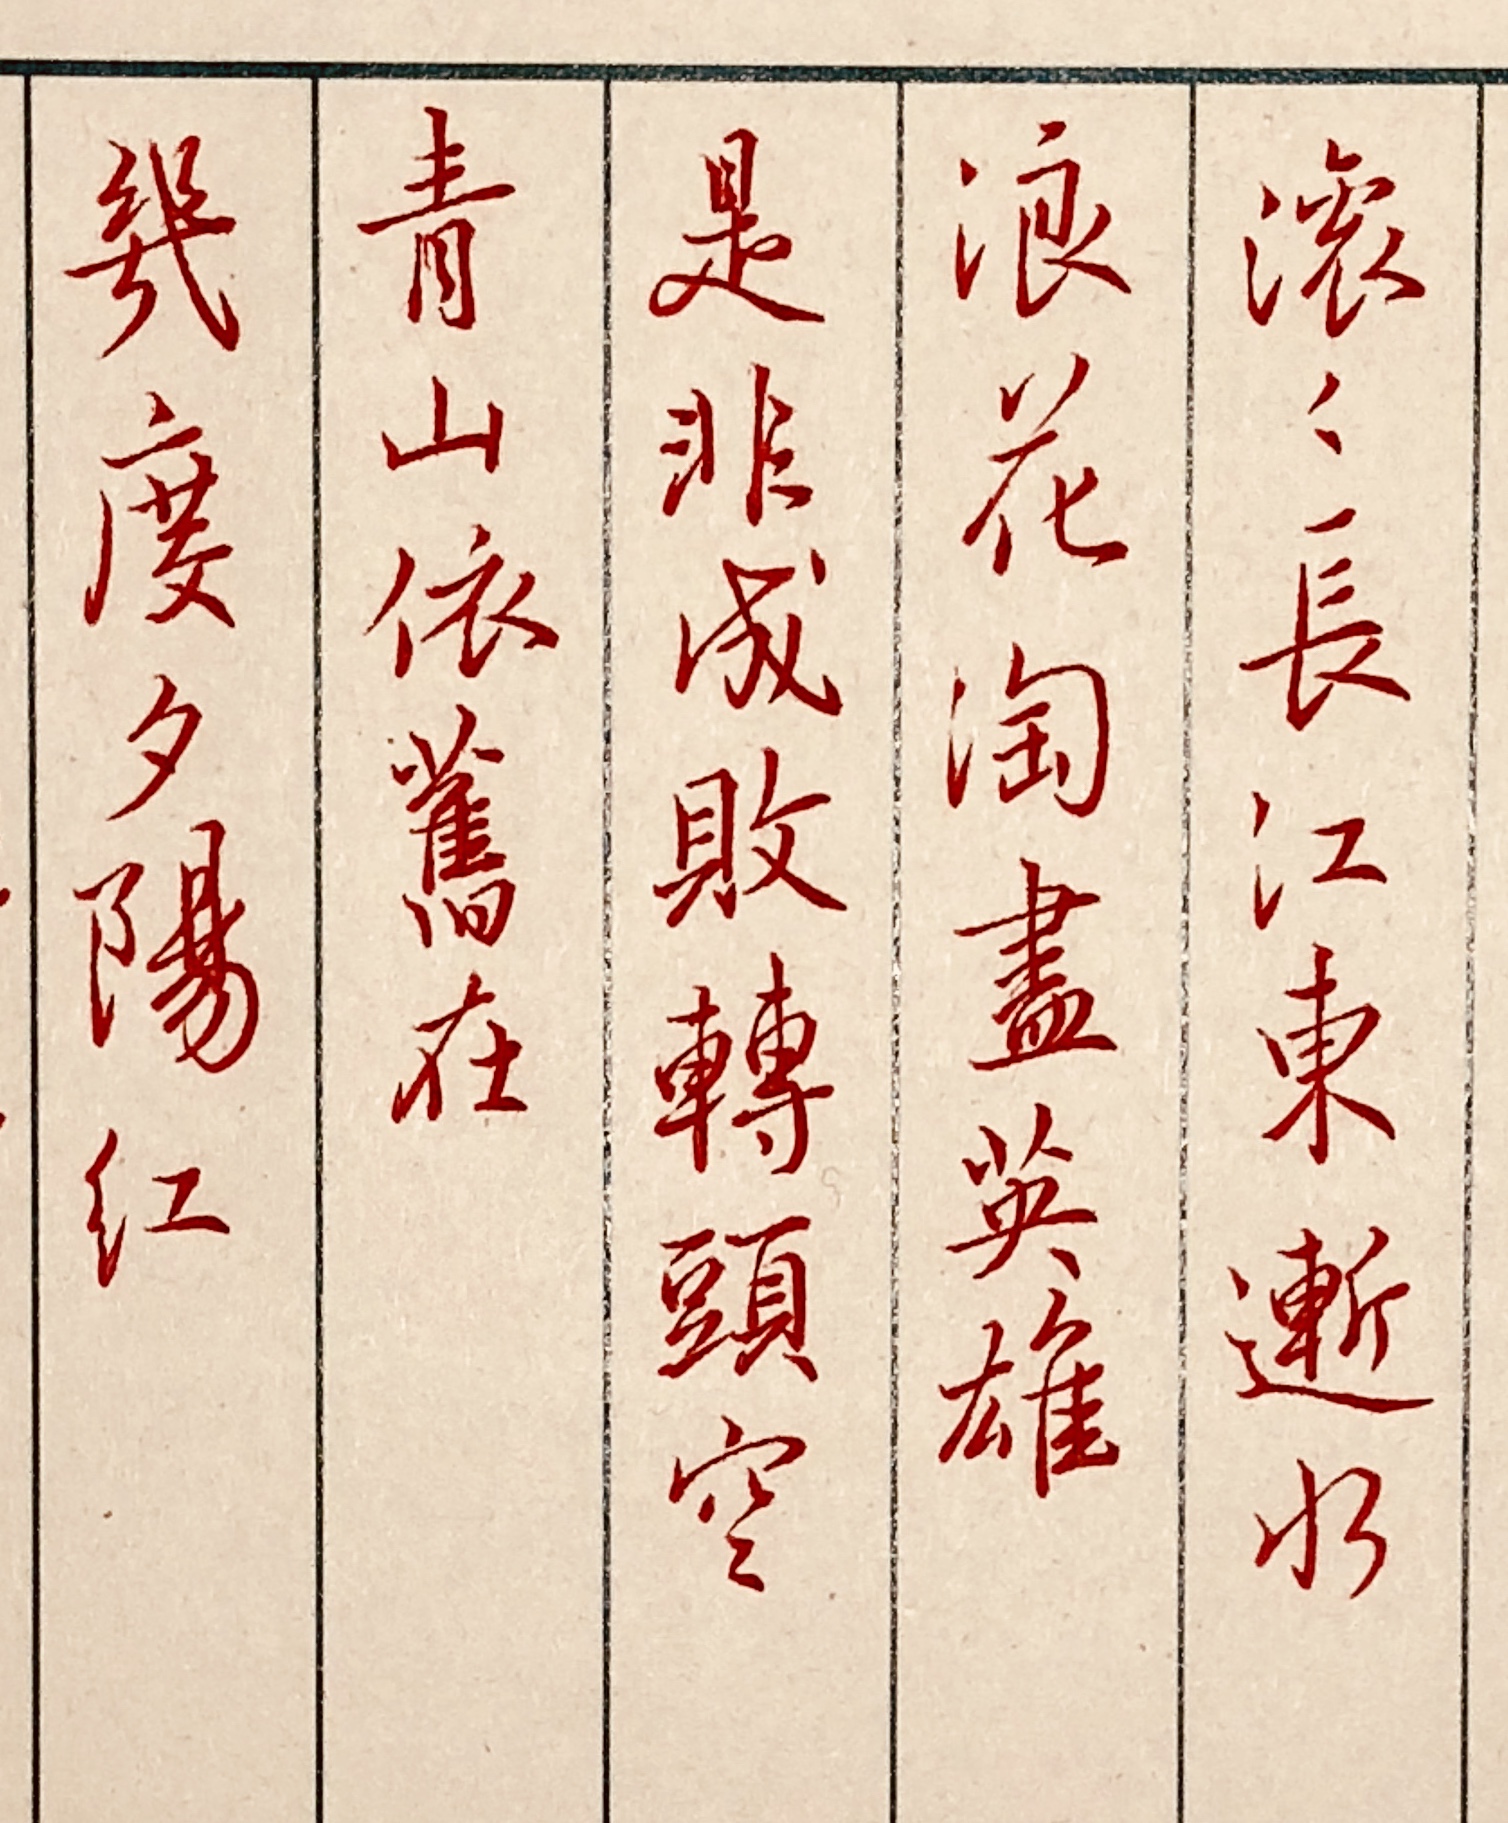 滾々長江東逝水
浪花淘盡英雄
是非成敗轉頭空
青山依舊在
幾度夕陽紅